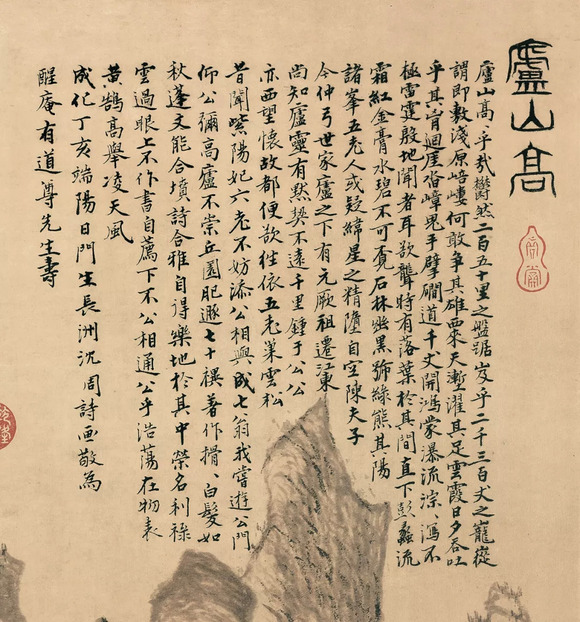 廬山高
廬山高、乎哉鬱然二百五十里之盤踞岌乎二千三百丈之巃嵷
謂即敷淺原培嶁何敢爭其雄西來天塹濯其足雲霞日夕吞吐
乎其胷迴崖沓嶂鬼手擘磵道千丈開鴻蒙瀑流淙、瀉不
極雷霆殷地聞者耳欲聾時有落葉於其間直下彭蠡流
霜紅金膏水碧不可覓石林幽黑號綠熊其陽
諸峯五老人或疑緯星之精墮自空陳夫子
今仲弓世家廬之下有元厥祖遷江東
尚知廬靈有默契不遠千里鍾于公公
亦西望懷故都便欲往依五老巢雲松
昔聞紫陽妃六老不妨添公相與成七翁我嘗遊公門
仰公彌高廬不崇丘園肥遯七十禩著作揖、白髮如
秋蓬文能合墳詩合雅自得樂地於其中榮名利祿
雲過眼上不作書自薦下不公相通公乎浩蕩在物表
黃鵠高舉凌天風
成化丁亥端陽日門生長洲沈周詩画敬為
醒庵有道尊先生壽